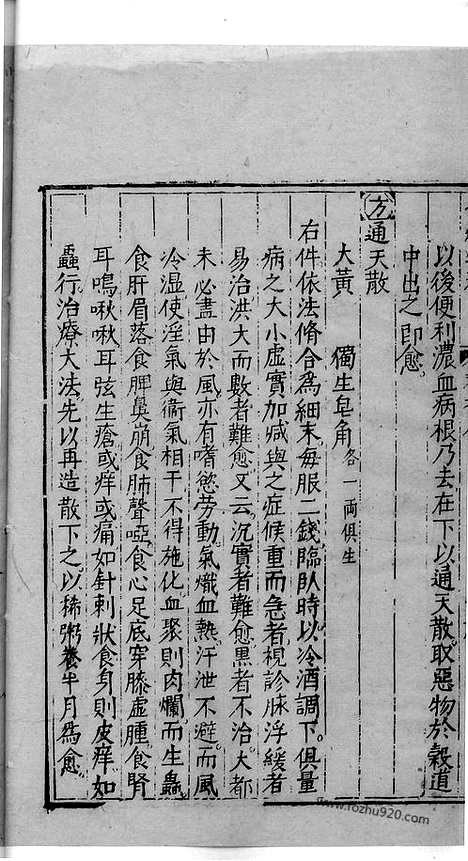 以後便利濃血病根乃去在下以通天散取惡物於穀道
中出之即愈
方通天散
大黃 獨生皂角各一兩俱生
右件依法脩合為細末每服二錢臨臥時以冷酒調下俱量
病之大小虛實加减與之症候重而急者視診脉浮緩者
易治洪大而數者難愈又云沉實者難愈黒者不治大都
未必盡由於風亦有嗜慾勞動氣熾血熱汗泄不避而風
冷濕使淫氣與衞氣相干不得施化血聚則肉爛而生蟲
食肝眉落食脾鼻崩食肺聲啞食心足底穿膝虛腫食腎
耳鳴啾啾耳弦生瘡或痒或痛如針刺狀食身則皮痒如
蟲行治療大法先以再造散下之以稀粥養半月為愈
www.fozhu920.com